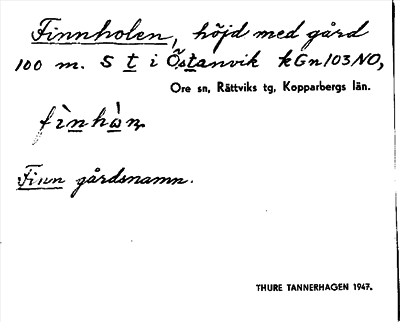 Finnholen, höjd med gård
100 m. S t i Östanvik kGn103NO,
Ore sn, Rättviks tg, Kopparbergs län.
fìnhàn
Finn gårdsnamn.
THURE TANNERHAGEN 1947.